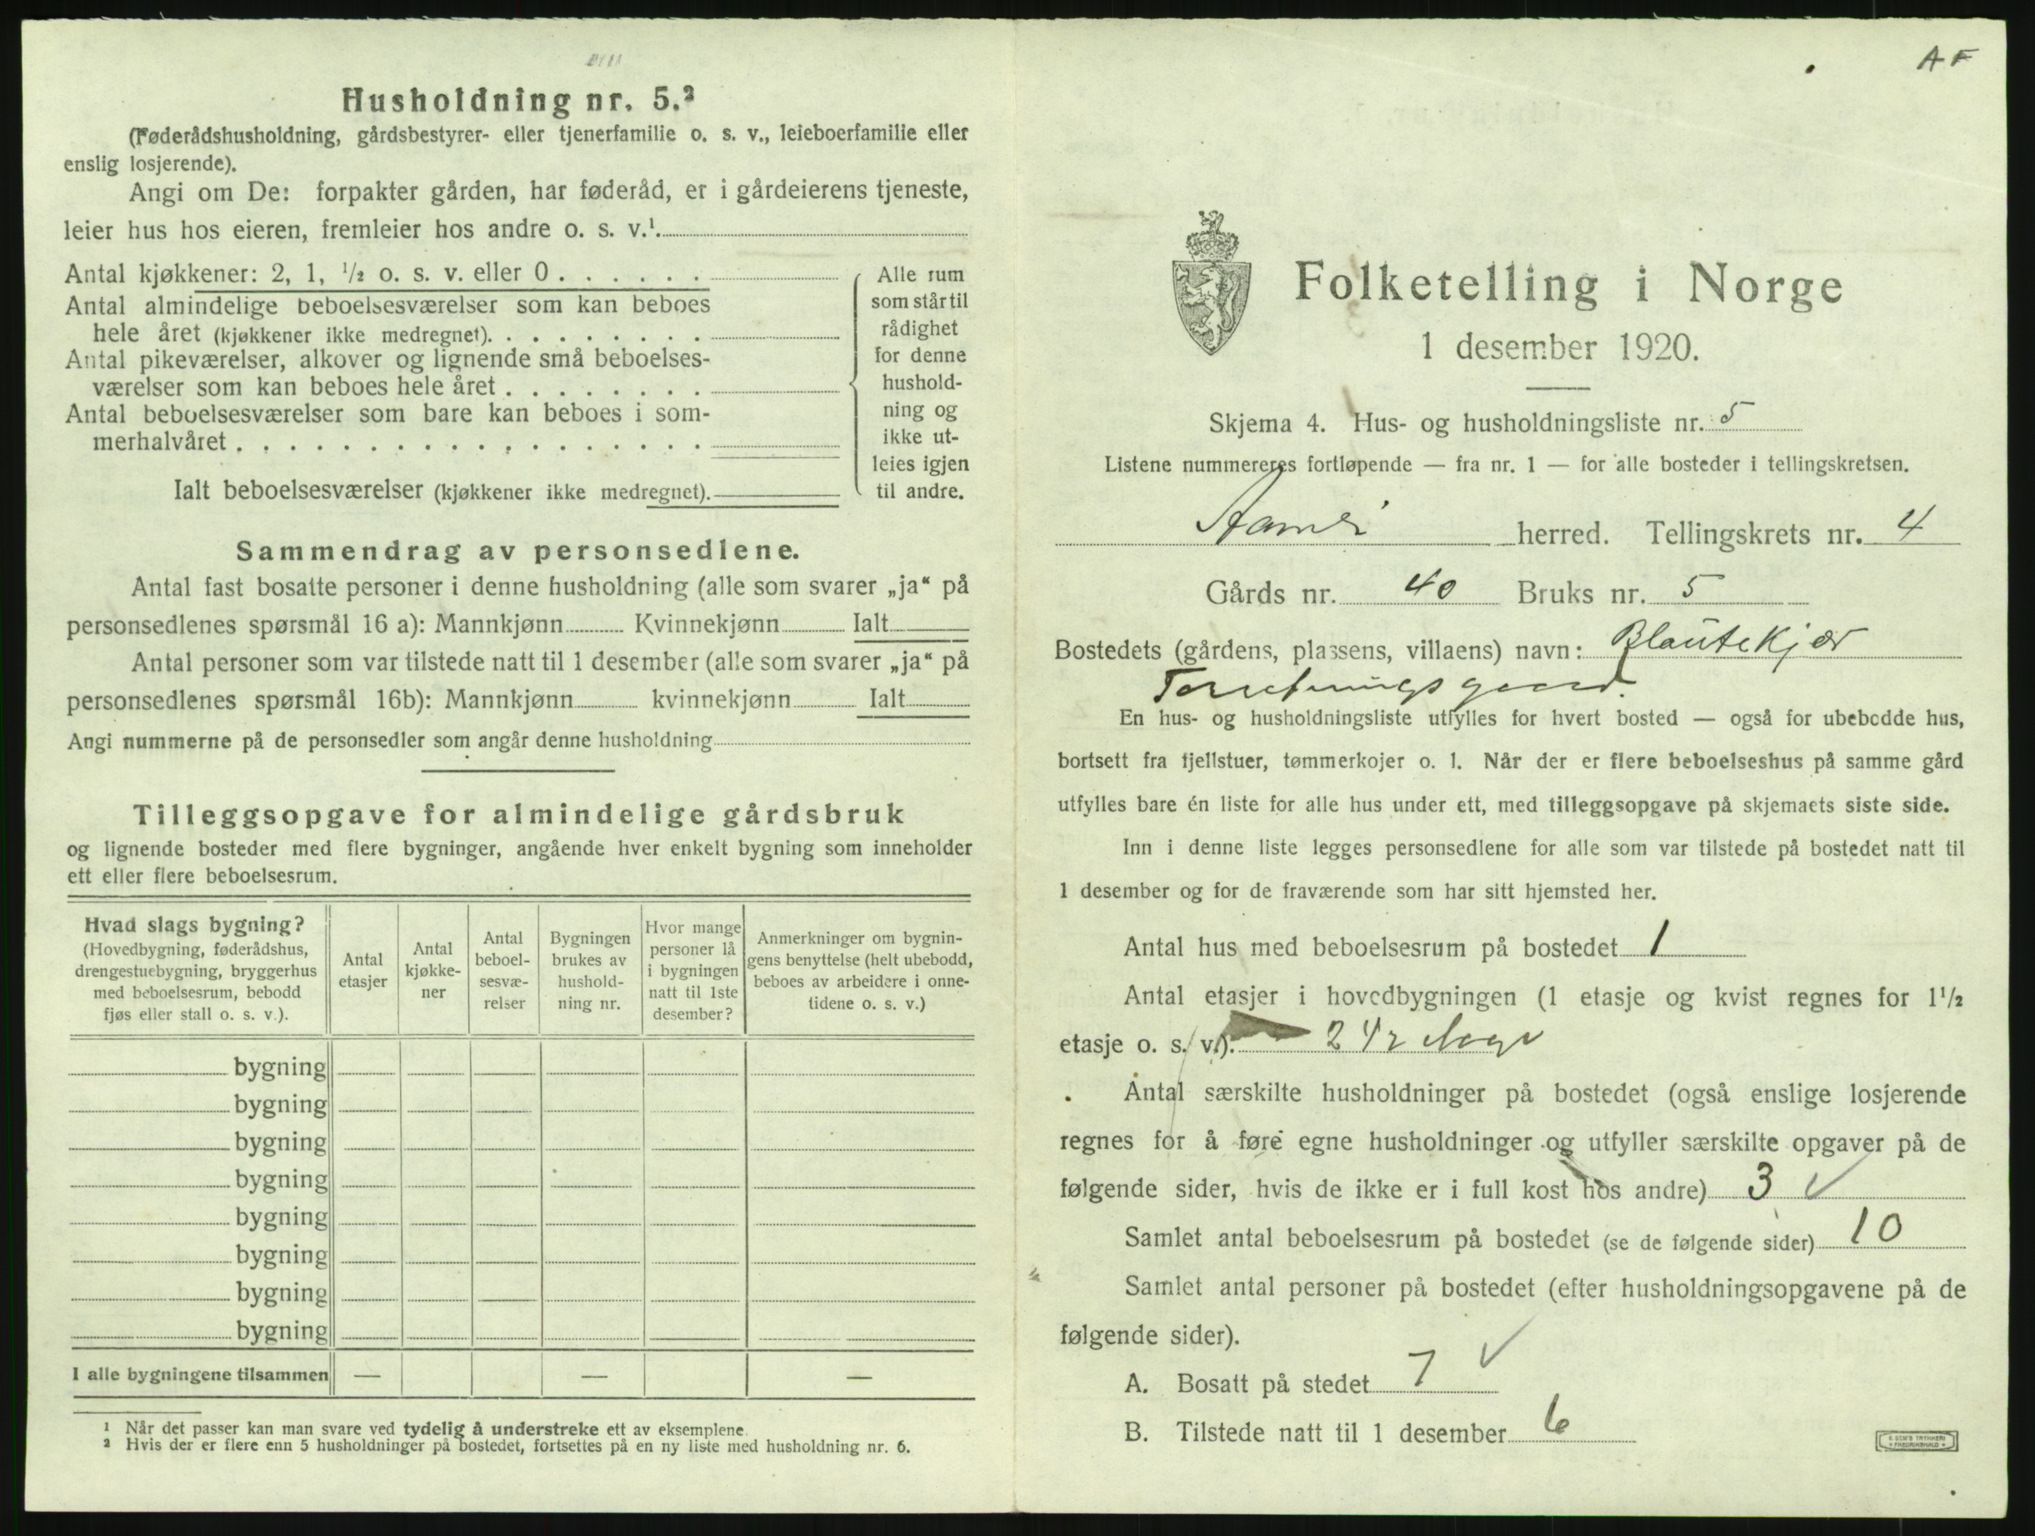 Husholdning nr. 5.²
(Føderådshusholdning, gårdsbestyrer- eller tjenerfamilie o. s. v., leieboerfamilie eller
enslig losjerende).
Angi om De: forpakter gården, har føderåd, er i gårdeierens tjeneste,
leier hus hos eieren, fremleier hos andre o. s. v.¹.
Antal kjøkkener: 2, 1, ½ o. s. v. eller 0 . . . . . .
Antal almindelige beboelsesværelser som kan beboes
hele året (kjøkkener ikke medregnet). . . . . . . . .
Antal pikeværelser, alkover og lignende små beboelses-
værelser som kan beboes hele året . . . . . . . .
Antal beboelsesværelser som bare kan beboes i som-
merhalvåret . . . . . . . . . . . . . . . . . .
Ialt beboelsesværelser (kjøkkener ikke medregnet).
Alle rum
som står til
rådighet
for denne
hushold-
ning og
ikke ut-
leies igjen
til andre.
Sammendrag av personsedlene.
Antal fast bosatte personer i denne husholdning (alle som svarer „ja“ på
personsedlenes spørsmål 16 a): Mannkjønn Kvinnekjønn Ialt
Antal personer som var tilstede natt til 1 desember (alle som svarer „ja“ på
personsedlenes spørsmål 16b): Mannkjønn kvinnekjønn Ialt
Angi nummerne på de personsedler som angår denne husholdning
Tilleggsopgave for almindelige gårdsbruk
og lignende bosteder med flere bygninger, angående hver enkelt bygning som inneholder
ett eller flere beboelsesrum.
Hvad slags bygning?
(Hovedbygning, føderådshus,
drengestuebygning, bryggerhus
med beboelsesrum, bebodd
fjøs eller stall o. s. v.).
Antal
etasjer
Antal
kjøkke-
ner
Antal
beboel-
sesvæ-
relser
Bygningen
brukes av
hushold-
ning nr.
Hvor mange
personer lå
i bygningen
natt til 1ste
desember?
Anmerkninger om bygnin-
gens benyttelse (helt ubebodd,
beboes av arbeidere i onne-
tidene o. s. v.)
bygning
bygning
bygning
bygning
bygning
bygning
bygning
bygning
I alle bygningene tilsammen — — —
¹ Når det passer kan man svare ved tydelig å understreke ett av eksemplene.
² Hvis der er flere enn 5 husholdninger på bostedet, fortsettes på en ny liste med husholdning nr. 6.
A F
Folketelling i Norge
1 desember 1920.
Skjema 4. Hus- og husholdningsliste nr. 5
Listene nummereres fortløpende — fra nr. 1 — for alle bosteder i tellingskretsen.
Aamli herred. Tellingskrets nr. 4
Gårds nr. 40 Bruks nr. 5
Bostedets (gårdens, plassens, villaens) navn: Blautekjær
Forretningsgaard.
En hus- og husholdningsliste utfylles for hvert bosted — også for ubebodde hus,
bortsett fra fjellstuer, tømmerkojer o. l. Når der er flere beboelseshus på samme gård
utfylles bare én liste for alle hus under ett, med tilleggsopgave på skjemaets siste side.
Inn i denne liste legges personsedlene for alle som var tilstede på bostedet natt til
1 desember og for de fraværende som har sitt hjemsted her.
Antal hus med beboelsesrum på bostedet 1
Antal etasjer i hovedbygningen (1 etasje og kvist regnes for 1½
etasje o. s. v.). 2
Antal særskilte husholdninger på bostedet (også enslige losjerende
regnes for å føre egne husholdninger og utfyller særskilte opgaver på de
følgende sider, hvis de ikke er i full kost hos andre) 3 ✓
Samlet antal beboelsesrum på bostedet (se de følgende sider) 10
Samlet antal personer på bostedet (efter husholdningsopgavene på de
følgende sider).
A. Bosatt på stedet 7 ✓
B. Tilstede natt til 1 desember 6